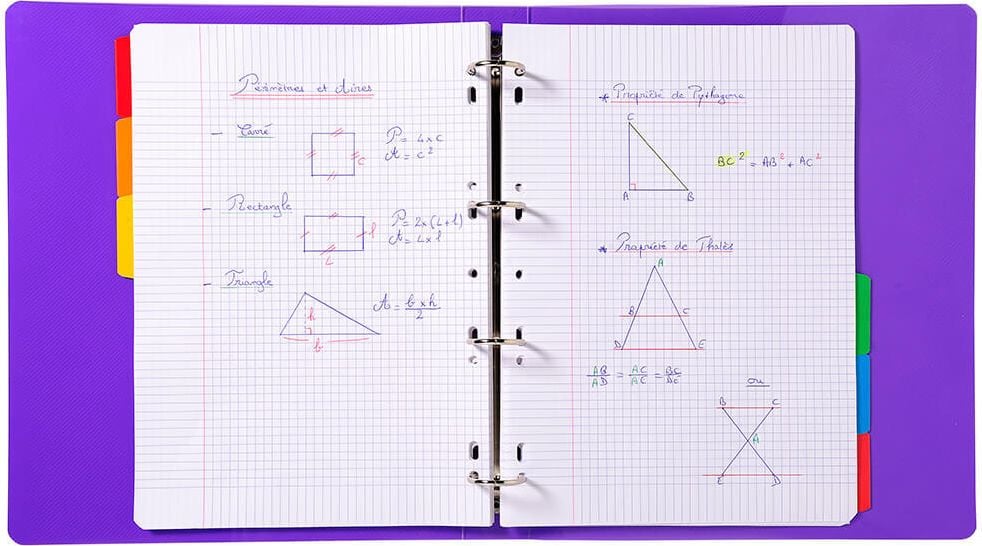 Périmètres et Aires
- Carré
c
P = 4 x c
A = c²
- Rectangle
l
L
P = 2x (L+l)
A = L x l
- Triangle
h
b
A = b x h
2
* Propriété de Pythagore
C
A B
BC² = AB² + AC²
* Propriété de Thalès
A
B C
D E
AB = AC = BC
AD AC DC
ou
B C
A
E D